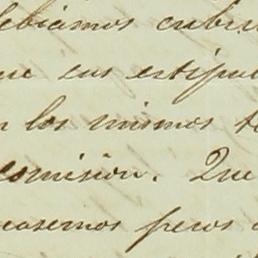 debiamos cubri
que sus estipul
n los mismos t
comision. Que
casemos pesos